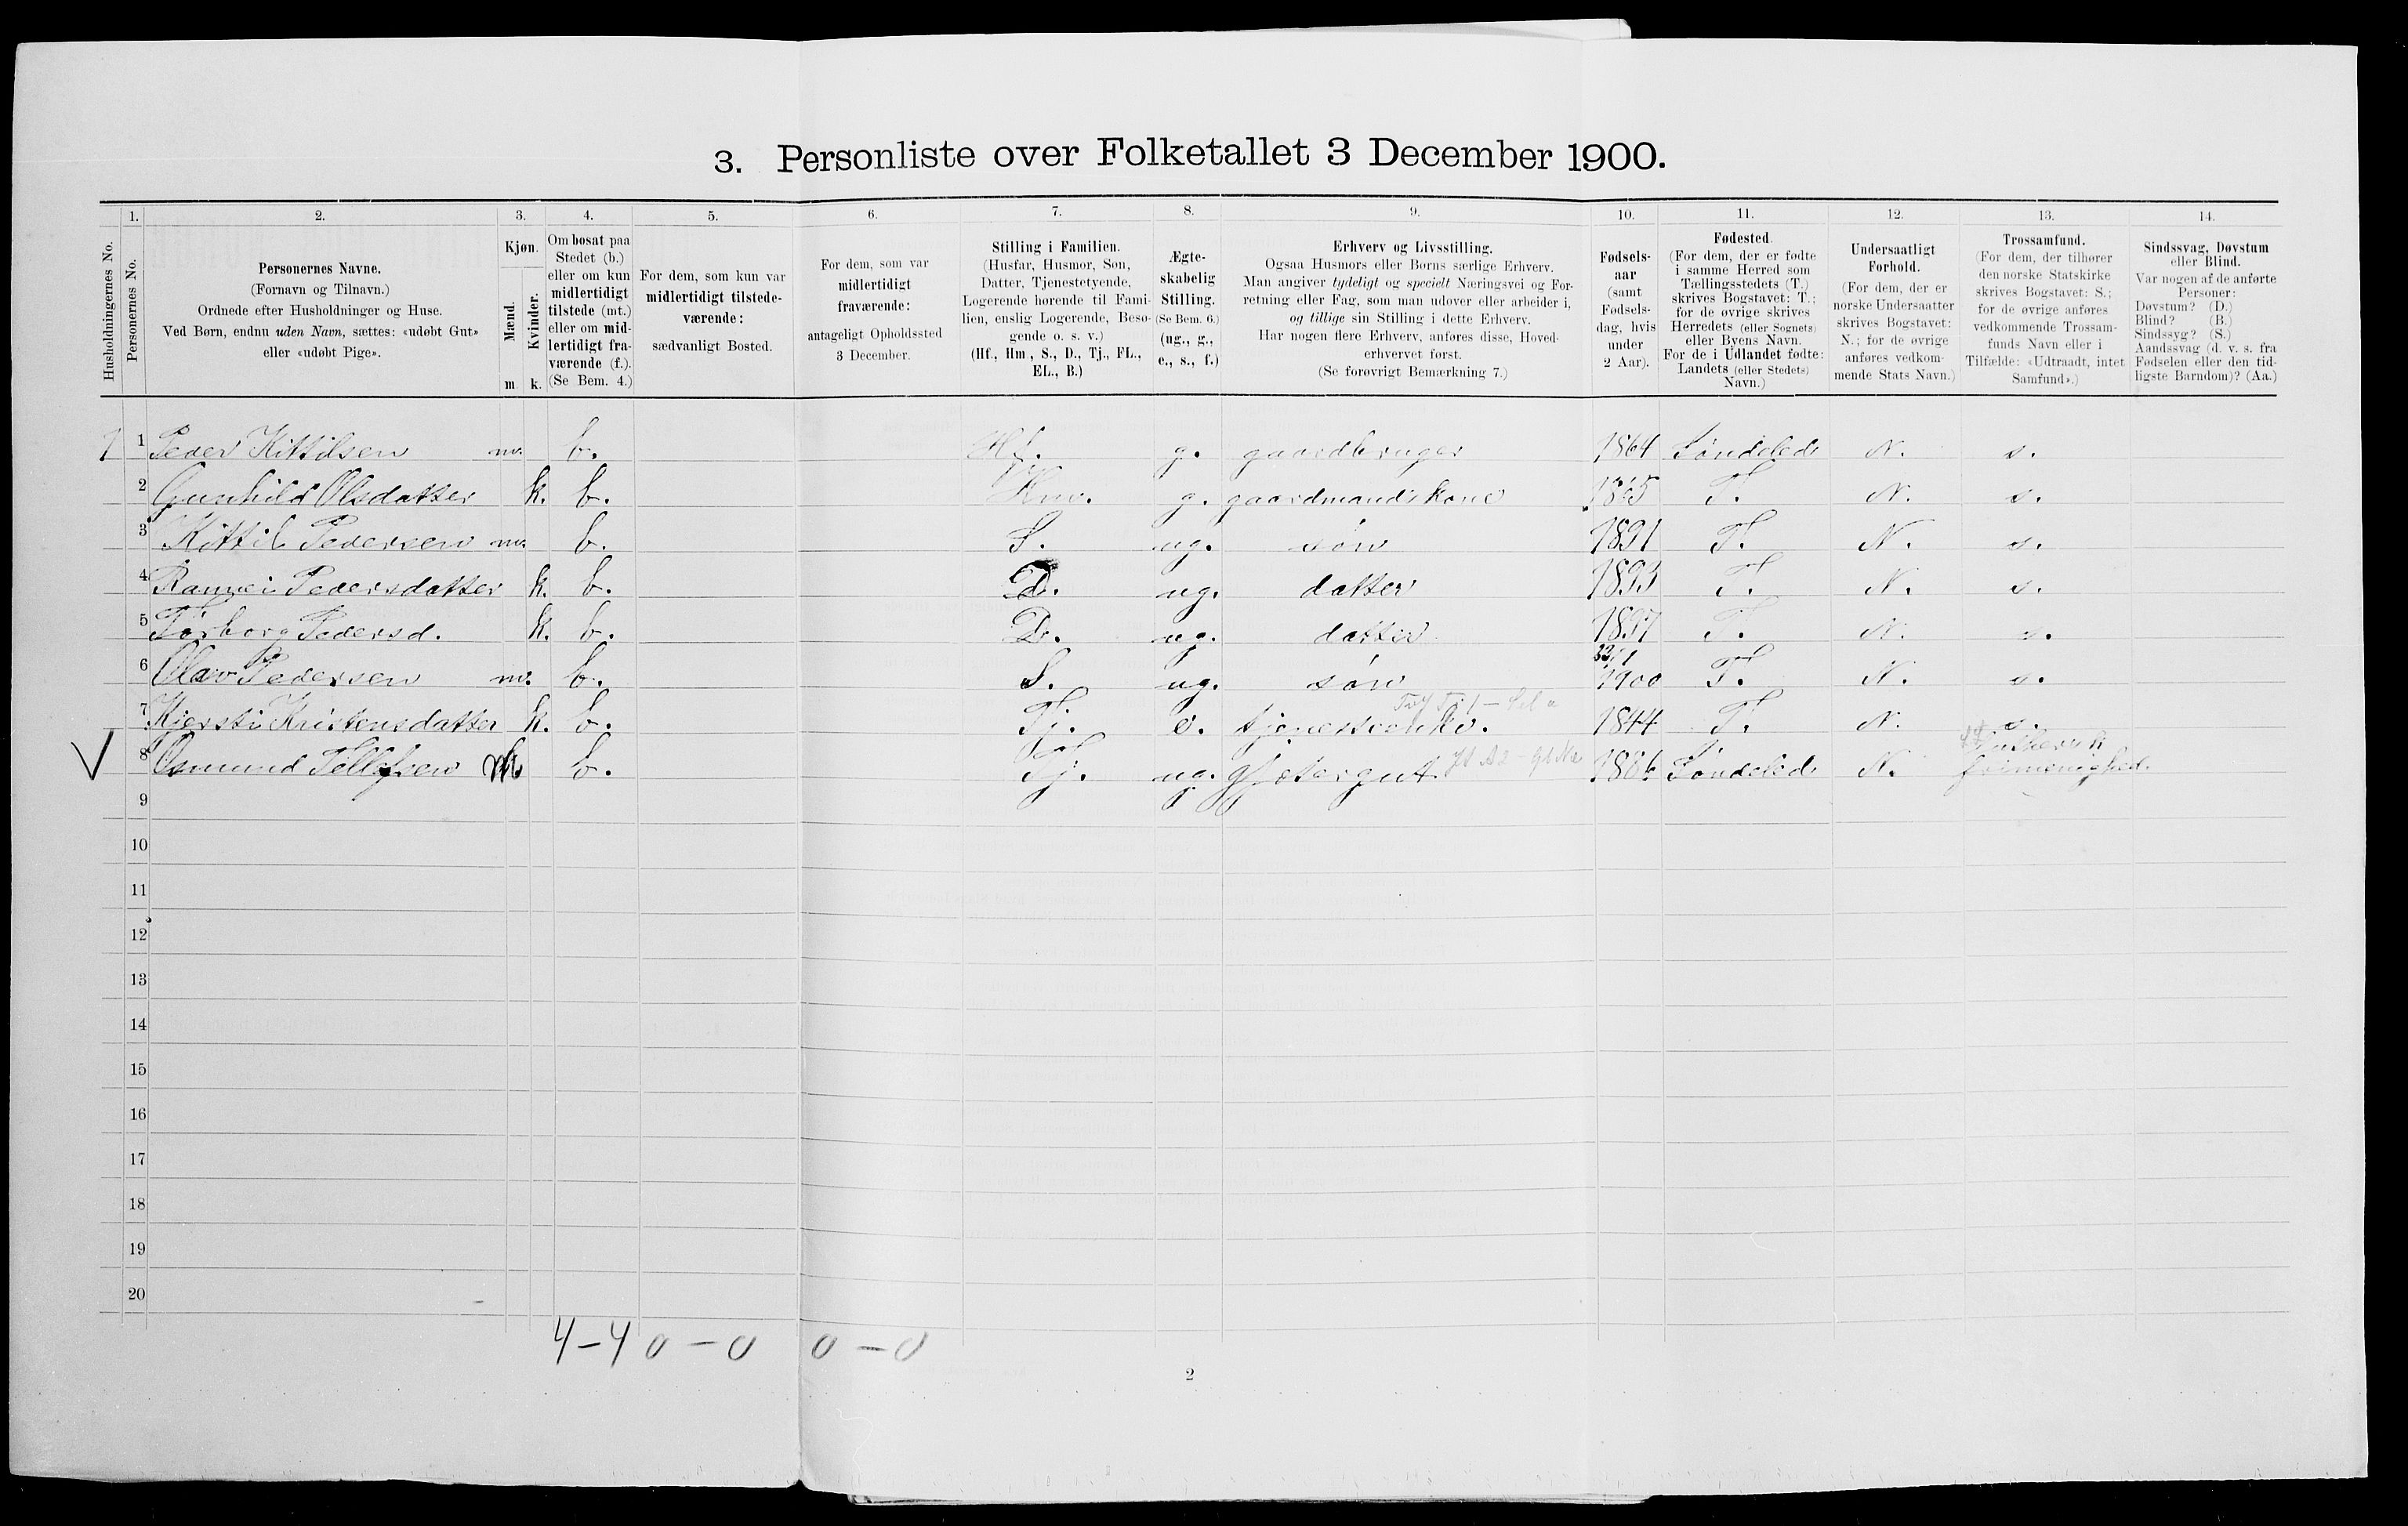 3. Personliste over Folketallet 3 December 1900.
1. 2. 3. 4. 5. 6. 7. 8. 9. 10. 11. 12. 13. 14.
Husholdningernes No.
Personernes No.
Personernes Navne.
(Fornavn og Tilnavn.)
Ordnede efter Husholdninger og Huse.
Ved Børn, endnu uden Navn, sættes: «udøbt Gut»
eller «udøbt Pige».
Kjøn.
Mænd.
Kvinder.
m. k.
Om bosat paa
Stedet (b.)
eller om kun
midlertidigt
tilstede (mt.)
eller om mid-
lertidigt fra-
værende (f.).
(Se Bem. 4.)
For dem, som kun var
midlertidigt tilstede-
værende:
sædvanligt Bosted.
For dem, som var
midlertidigt
fraværende:
antageligt Opholdssted
3 December.
Stilling i Familien.
(Husfar, Husmor, Søn,
Datter, Tjenestetyende,
Logerende hørende til Fami-
lien, enslig Logerende, Besø-
gende o. s. v.)
(Hf., Hm., S., D., Tj., FL.,
EL., B.)
Ægte-
skabelig
Stilling.
(Se Bem. 6.)
(ug., g.,
e., s., f.)
Erhverv og Livsstilling.
Ogsaa Husmors eller Børns særlige Erhverv.
Man angiver tydeligt og specielt Næringsvei og For-
retning eller Fag, som man udover eller arbeider i,
og tillige sin Stilling i dette Erhverv.
Har nogen flere Erhverv, anføres disse, Hoved-
erhvervet først.
(Se forøvrigt Bemærkning 7.)
Fødsels-
aar
(samt
Fødsels-
dag, hvis
under
2 Aar).
Fødested.
(For dem, der er fødte
i samme Herred som
Tællingsstedets (T.)
skrives Bogstavet: T.;
for de øvrige skrives
Herredets (eller Sognets)
eller Byens Navn.
For de i Udlandet fødte:
Landets (eller Stedets)
Navn.)
Undersaatligt
Forhold.
(For dem, der er
norske Undersaatter
skrives Bogstavet:
N.; for de øvrige
anføres vedkom-
mende Stats Navn.)
Trossamfund.
(For dem, der tilhører
den norske Statskirke
skrives Bogstavet: S.;
for de øvrige anføres
vedkommende Trossam-
funds Navn eller i
Tilfælde: «Udtraadt, intet
Samfund».)
Sindssvag, Døvstum
eller Blind.
Var nogen af de anførte
Personer:
Døvstum? (D.)
Blind? (B.)
Sindssyg? (S.)
Aandssvag (d. v. s. fra
Fødselen eller den tid-
ligste Barndom)? (Aa.)
1 1 Peder Kittilsen m. b. Hf. g. gaardbruger 1864 Søndeled N. s.
2 Gunhild Olsdatter k. b. Hm. g. gaardmandskone 1865 T. N. s.
3 Kittil Pedersen m. b. S. ug. søn 1891 T. N. s.
4 Rannei Pedersdatter k. b. D. ug. datter 1893 T. N. s.
5 Torborg Pedersd. k. b. D. ug. datter 1897 T. N. s.
6 Olav Pedersen m. b. S. ug. søn 1900 T. N. s.
7 Kjersti Kristensdatter k. b. Tj. e. tjenesteenke. 1844 T. N. s.
8 Osmund Tellefsen m b. Tj. ug. gjætergut. 1886 Søndeled N. Luthersk
frimenighed.
9
10
11
12
13
14
15
16
17
18
19
20
4-4 0-0 0-0
2